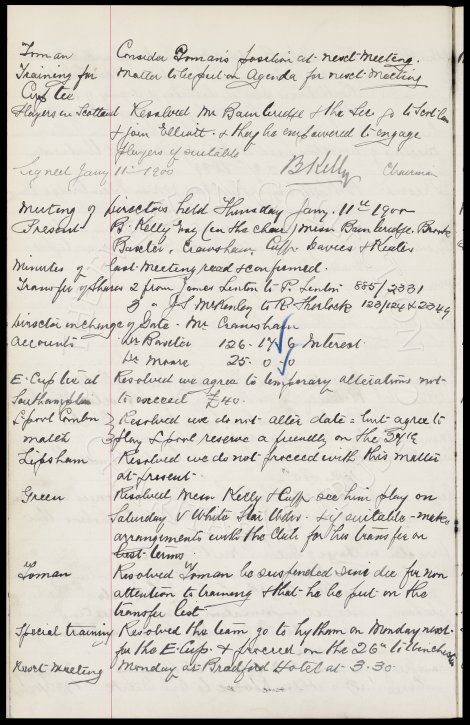 Toman Consider Toman's position at next meeting.
Training for Matter to be put on Agenda for next meeting
Cup tee
Players in Scotland Resolved Mr Bainbridge & the Sec go to Scotland
& join Elliott & they be empowered to engage
players if suitable
Signed Jany 11th 1900 B Kelly Chairman
Meeting of Directors held Thursday Jany. 11th 1900
Present B. Kelly Esq (in the chair) Messrs Bainbridge. Brooks
Baxter, Crawshaw Cuff. Davies & Keates
Minutes of last meeting read & confirmed.
Transfer of Shares 2 from James Linton to R. Linton 885/2331
3 " J S McKenley to R Sherlock 123/124 & 2349
Director in charge of Gate - Mr Crawshaw
Accounts Dr Baxter 126. 17. 6 Interest
Dr Moore 25. 0. 0
E. Cup tie at Resolved we agree to temporary alterations not
Southampton to exceed £40.
L'pool Combn Resolved we do not alter date: but agree to
match play L'pool reserve a friendly on the
Lipsham Resolved we do not proceed with this matter
at present.
Green Resolved Messrs Kelly & Cuff see him play on
Saturday V White Star Wdrs. & if suitable - make
arrangements with the Club for his transfer on
best terms.
Toman Resolved Toman be suspended sine die for non
attention to training & that he be put on the
transfer list
Special training Resolved the team go to Lytham on Monday next
for the E. Cup. & proceed on the 26th to Winchester
Next Meeting Monday at Bradford Hotel at 3.30